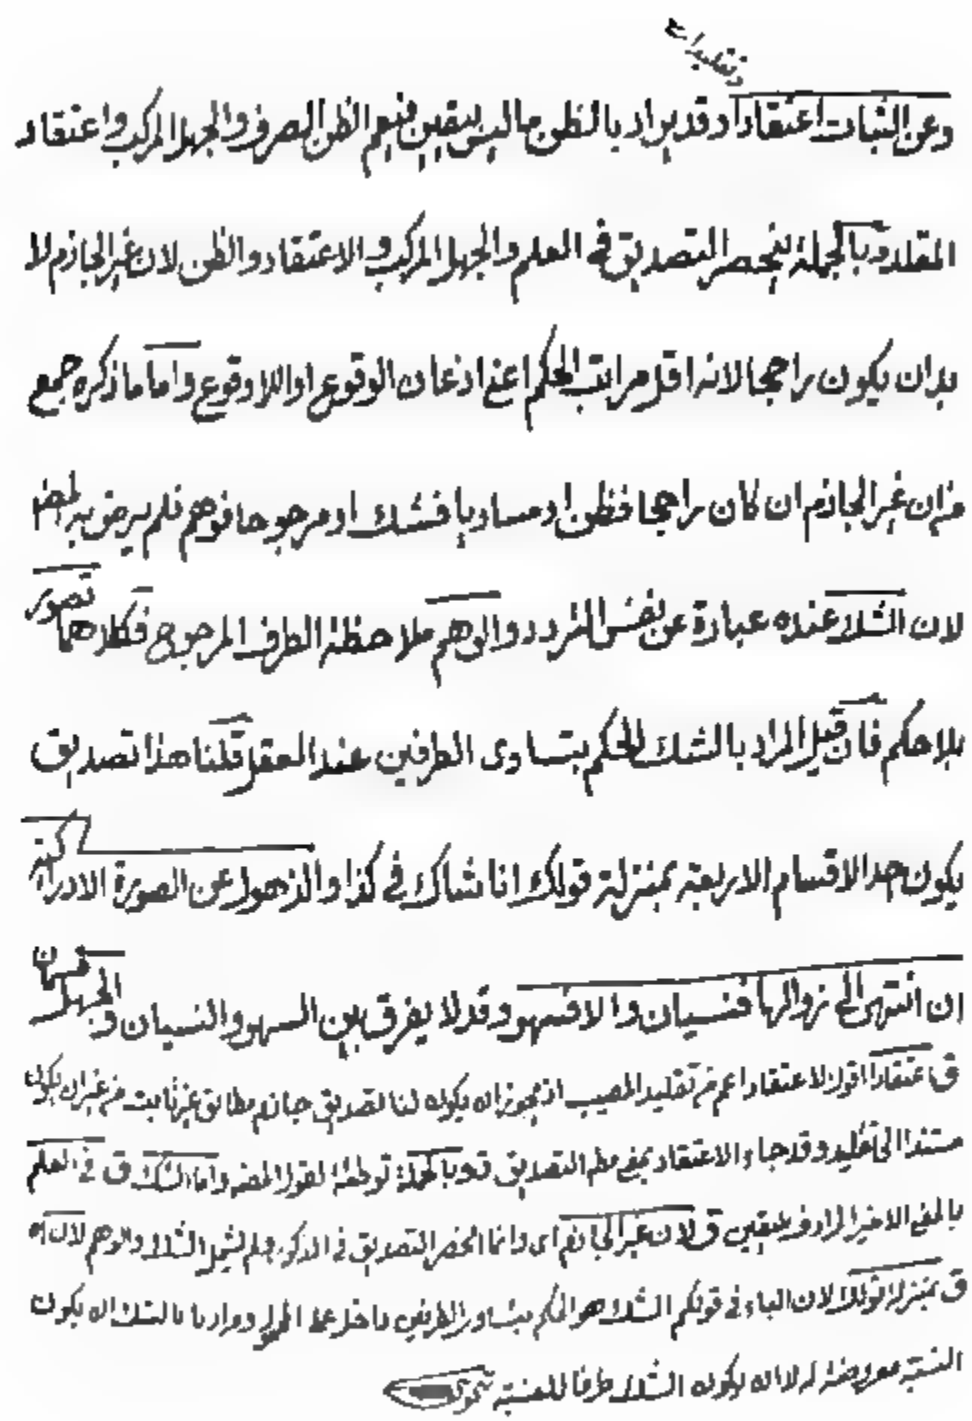 وتقليدا
وعن الثبات اعتقادا وقد يراد بالظن ما ليس بيقين فيعم الظن الصرف والجهل المركب واعتقاد
المقلد وبالجملة ينحصر التصديق في العلم والجهل المركب والاعتقاد والظن لان غير الجازم لا
بد ان يكون راجحا لانه اقل مراتب الحكم اعني اذعان الوقوع او اللاوقوع واما ما ذكره جمع
من ان غير الجازم ان كان راجحا فظن او مساويا فشك او مرجوحا فوهم فلم يرض به المص
لان الشك عنده عبارة عن نفس التردد والوهم ملاحظة الطرف المرجوح فكلاهما تصور
بلا حكم فان قيل المراد بالشك الحكم بتساوى الطرفين عند العقل قلنا هذا تصديق
يكون احد الاقسام الاربعة بمنزلة قولك انا شاك في كذا والذهول عن الصورة الادراكية
ان انتهى الى زوالها فنسيان والا فسهو وقد لا يفرق بين السهو والنسيان والجهل
ق اعتقادا اقول الاعتقاد اعم من تقليد المصيب اذ يجوز ان يكون لنا تصديق جازم مطابق غير ثابت من غير ان يكون
مستندا الى تقليد وقد جاء الاعتقاد بمعنى مطلق التصديق ق وبالجملة توطئة لقول المص واما الشك ق في العلم
بالمعنى الاخير المرادف لليقين ق لان غير الجازم اى وانما انحصر التصديق في المذكور ولم يشمل الشك والوهم لان
ق بمنزلة قولك لان الباء في قولكم الشك هو الحكم بتساوى الطرفين داخل على المحمول ومرادنا بالشك ان يكون
النسبة معروضة له لا ان يكون الشك طرفا للنسبة